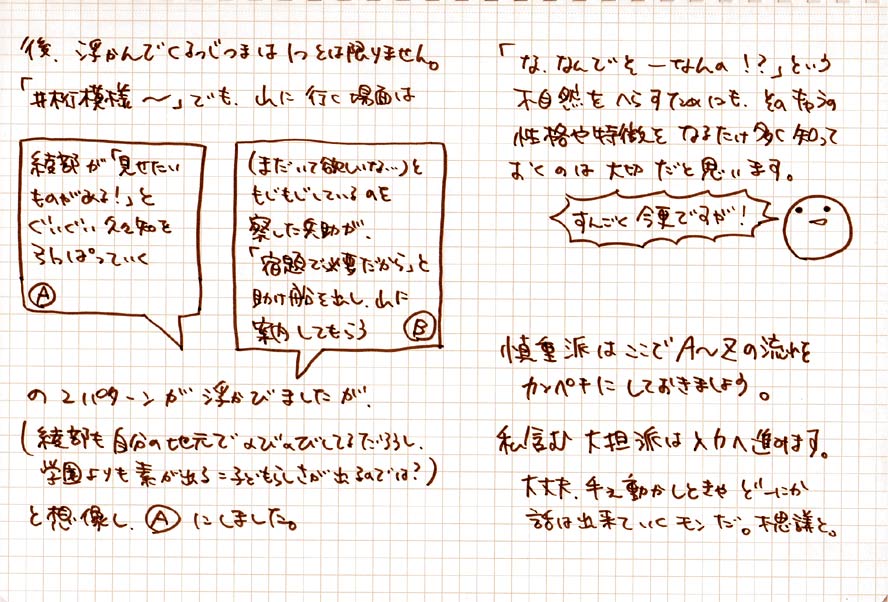 後、浮かんでくるつじつまは1つとは限りません。
「井桁模様〜」でも、山に行く場面は
綾部が「見せたい
ものがある!」と
ぐいぐい久々知を
ろれぱっていく
A
(まだいて欲しいな…)と
もじもじしているのを
察した兵助が、
「宿題で必要だから」と
助け船を出し、山に
案内してもらう
B
の2パターンが浮かびましたが、
(綾部も自分の地元でのびのびしてるだろうし、
学園よりも素が出る=子どもらしさが出るのでは?)
と想像し、Aにしました。
「な、なんでそーなんの!?」という
不自然をへらすためにも、そのキャラの
性格や特徴をなるたけ多く知って
おくのは大切だと思います。
すんごく今更ですが!
慎重派はここでA〜Zの流れを
カンペキにしておきましょう。
私含む大担派は入力へ進みます。
大丈夫、手ェ動かしときゃどーにか
話は出来ていくモンだ。不思議と。